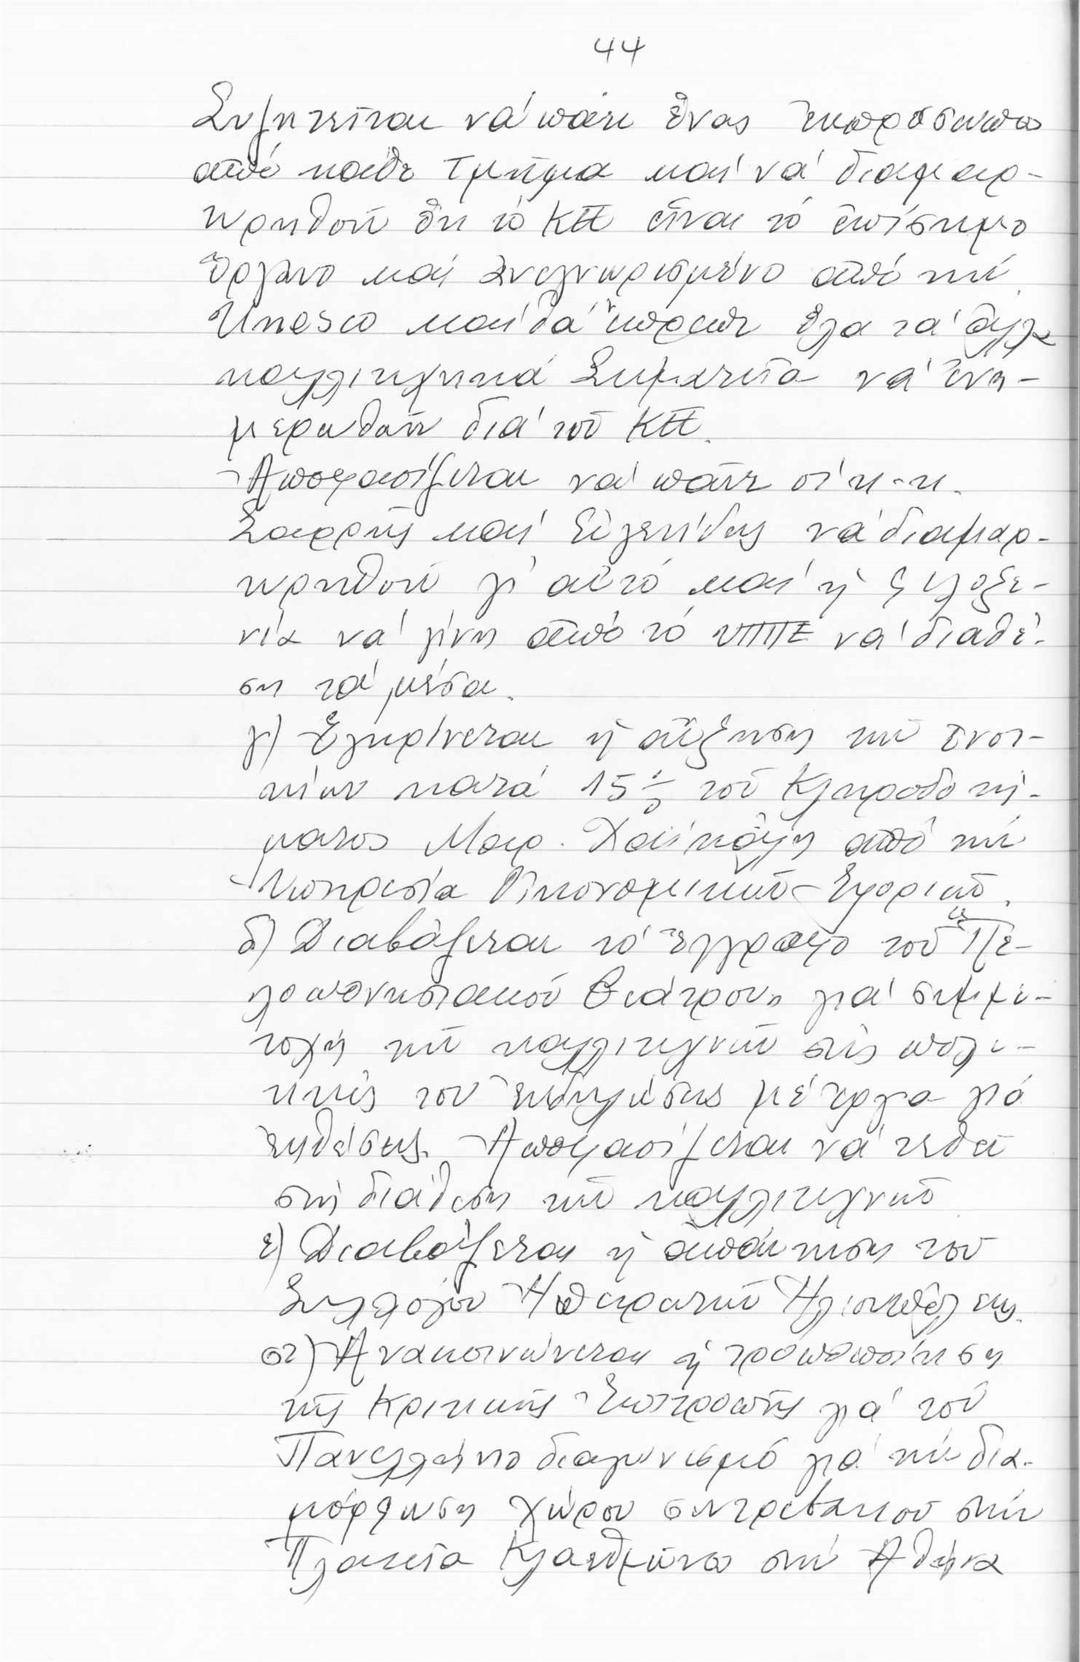 44
Συζητεῖται νά πάη ἕνας ἐκπρόσωπο
ἀπό κάθε τμῆμα καί νά διαμαρ-
τυρηθοῦν ὅτι τό ΚΕΕ εἶναι τό ἐπίσημο
ὄργανο καί ἀνεγνωρισμένο ἀπό τήν
Unesco καί θά ἔπρεπε ὅλα τά ἄλλα
καλλιτεχνικά Σωματεῖα νά ἐνη-
μερωθοῦν διά τοῦ ΚΕΕ.
Ἀποφασίζεται νά πᾶνε οἱ κ.κ.
καί Εὐγενίδης νά διαμαρ-
τυρηθοῦν γι' αὐτό καί ἡ φιλοξε-
νία νά γίνη ἀπό τό ΥΠΠΕ νά διαθέ-
ση τά μέσα.
γ) Ἐγκρίνεται ἡ αὔξηση τῶν ἐνοι-
κίων κατά 15% τοῦ Κληροδοτή-
ματος Μαρ. ἀπό τήν
Ὑπηρεσία Οἰκονομικῶν Ἐφοριῶν.
δ) Διαβάζεται τό ἔγγραφο τοῦ "Πε-
λοποννησιακοῦ Θεάτρου" γιά συμμε-
τοχή τῶν καλλιτεχνῶν στίς πολι-
τικές του ἐκδηλώσεις μέ ἔργα γιά
ἐκθέσεις. Ἀποφασίζεται νά τεθεῖ
στή διάθεση τῶν καλλιτεχνῶν
ε) Διαβάζεται ἡ ἀπάντηση τοῦ
Συλλόγου Ἠπειρωτῶν Ἡλιουπόλεως.
στ) Ἀνακοινώνεται ἡ τροποποίηση
τῆς Κριτικῆς Ἐπιτροπῆς γιά τοῦ
Πανελλήνιο διαγωνισμό γιά τήν δια-
μόρφωση χώρου συντριβανιοῦ στήν
Πλατεῖα Κλαυθμῶνος στήν Ἀθήνα